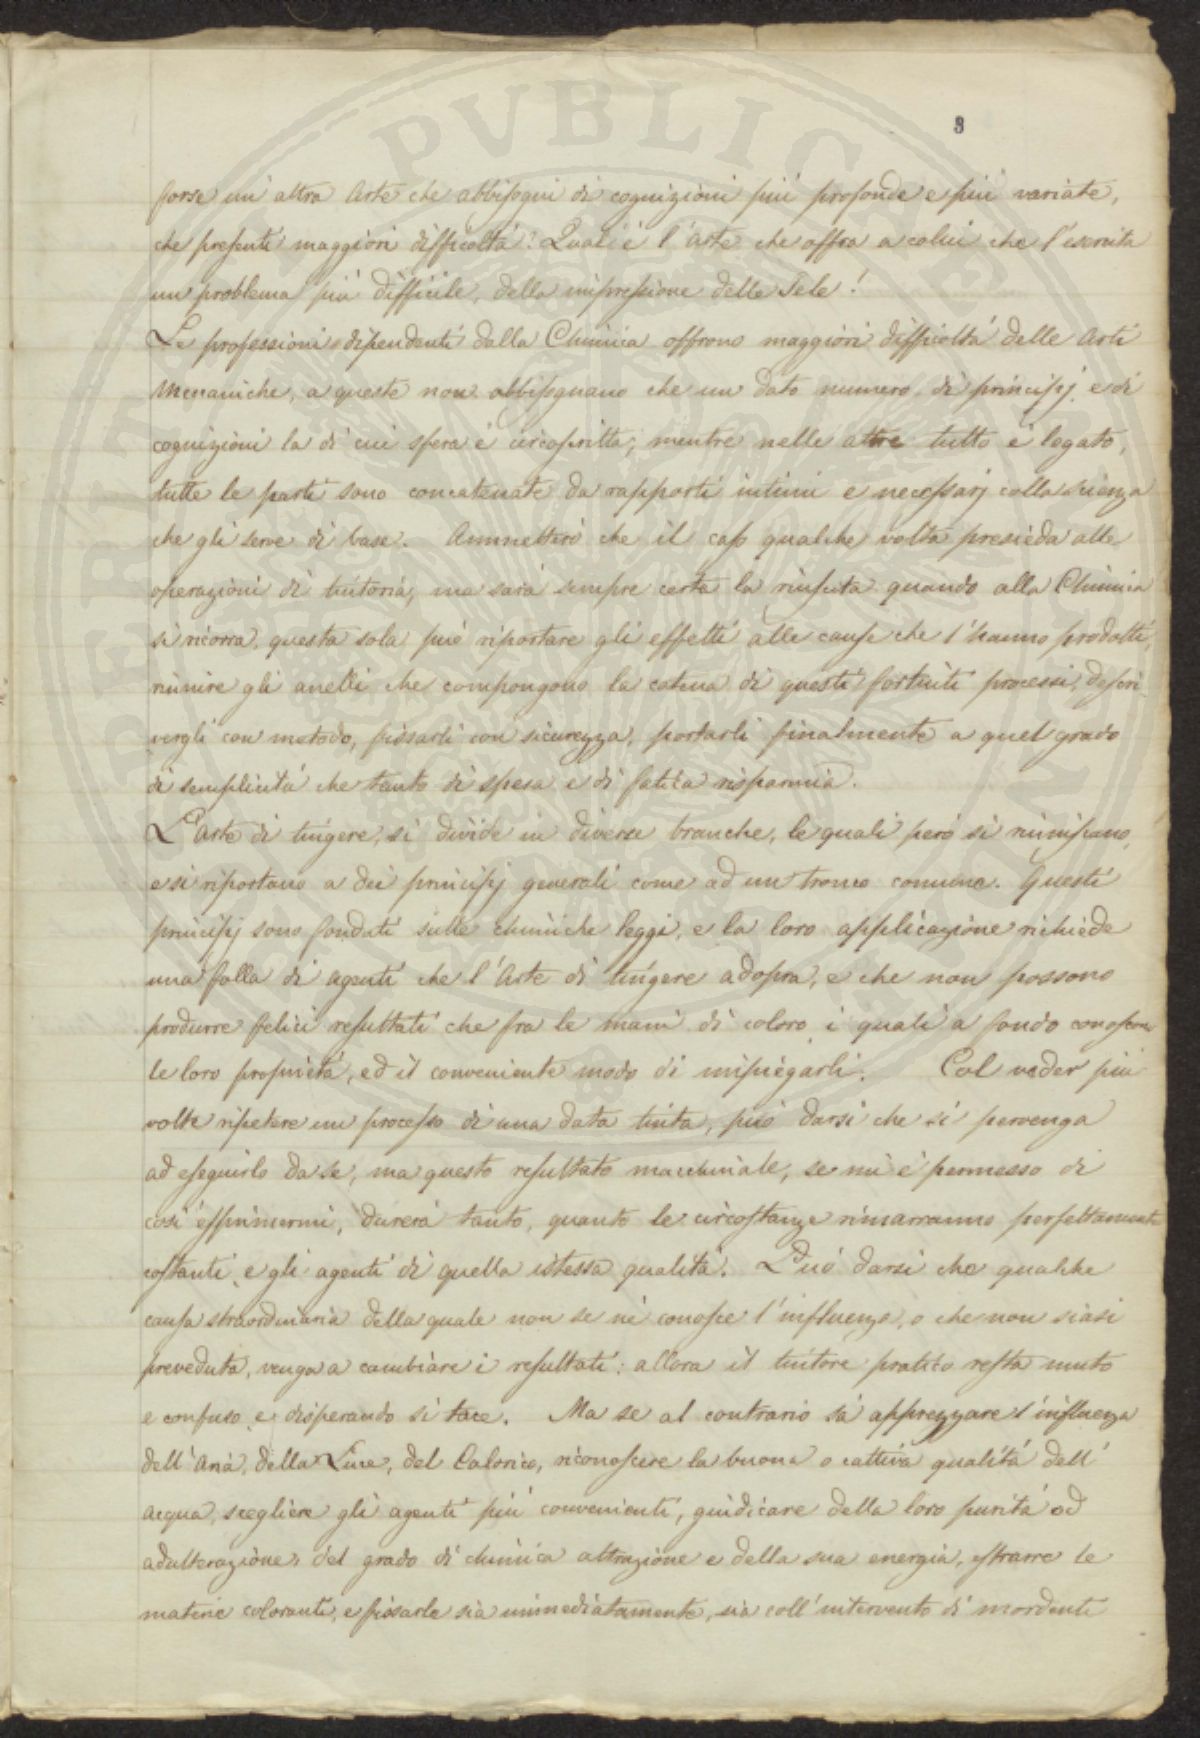 3
forse un' altra Arte che abbisogni di cognizioni più profonde e più variate,
che presenti maggiori difficoltà? Qual' è l'arte che offra a colui che l'esercita
un problema più difficile, della impressione delle Tele!
Le professioni dipendenti dalla Chimica offrono maggiori difficoltà delle Arti
Meccaniche, a queste non abbisognano che un dato numero di principj e di
cognizioni la di cui sfera è circoscritta; mentre nelle altre tutto è legato,
tutte le parti sono concatenate da rapporti intimi e necessarj colla scienza
che gli serve di base. Ammetterò che il caso qualche volta presieda alle
operazioni di tintoria, ma sarà sempre certa la riuscita quando alla Chimica
si ricorra, questa sola può riportare gli effetti alle cause che l'hanno prodotti,
riunire gli anelli che compongono la catena di questi fortuiti processi, descri-
vergli con metodo, fissarli con sicurezza, portarli finalmente a quel grado
di semplicità che tanto di spesa e di fatica risparmia.
L'Arte di tingere, si divide in diverse branche, le quali però si riuniscano,
e si riportano a dei principj generali come ad un tronco comune. Questi
principj sono fondati sulle chimiche leggi, e la loro applicazione richiede
una folla di agenti che l'Arte di tingere adopra, e che non possono
produrre felici resultati che fra le mani di coloro i quali a fondo conoscono
le loro proprietà, ed il conveniente modo di impiegarli. Col veder più
volte ripetere un processo di una data tinta, può darsi che si pervenga
ad eseguirlo da se, ma questo resultato macchinale, se mi è permesso di
così esprimermi, durerà tanto, quanto le circostanze rimarranno perfettamente
costanti e gli agenti di quella istessa qualità. Può darsi che qualche
causa straordinaria della quale non se ne conosce l'influenza, o che non siasi
preveduta, venga a cambiare i resultati: allora il tintore pratico resta muto
e confuso e disperando si tace. Ma se al contrario sà apprezzare l'influenza
dell'Aria, della Luce, del Calorico, riconoscere la buona o cattiva qualità dell'
acqua, scegliere gli agenti più convenienti, giudicare della loro purità od
adulterazione, del grado di chimica attrazione e della sua energia, estrarre le
materie coloranti, e fissarle sia immediatamente, sia coll'intervento di mordenti